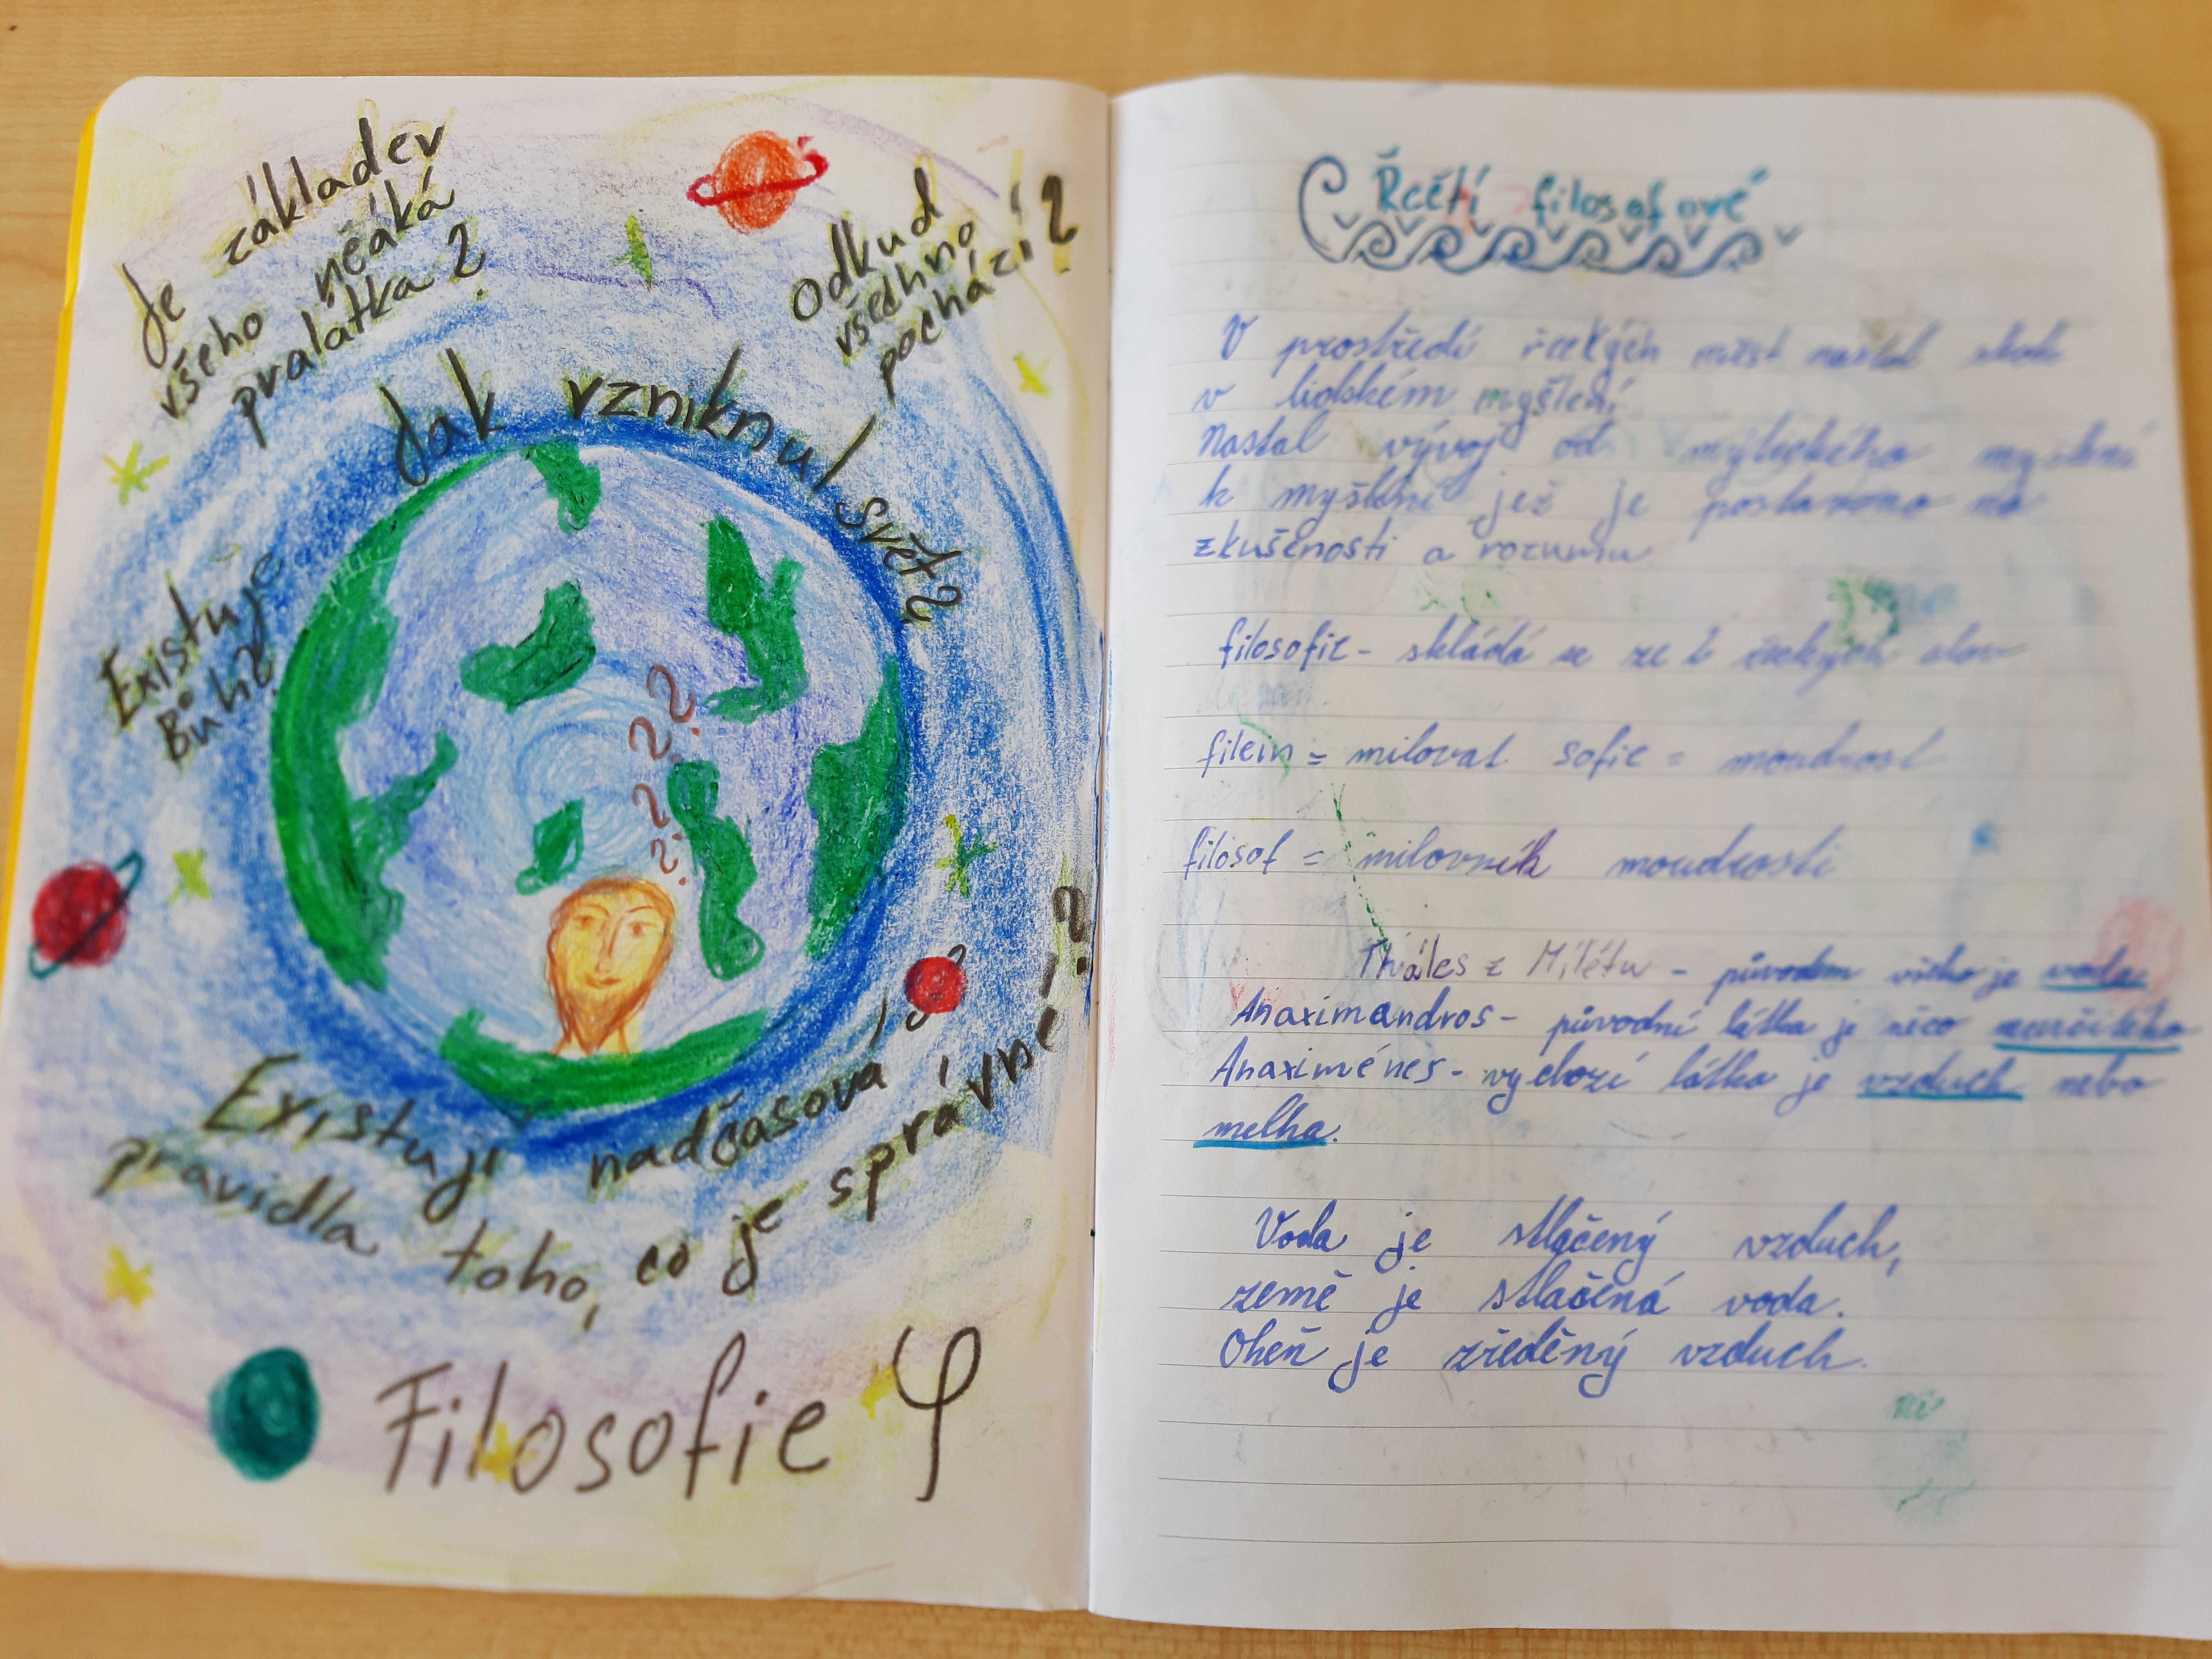 Je základev
všeho něáká
pralátka?
Odkud
všechno
pochází?
Jak vzniknul svět?
Existuje
Bůh?
Existují nadčasová
pravidla toho, co je správné?
Filosofie φ
Řečtí filosofové
V prostředí řeckých měst nastal skok
v lidském myšlení
Nastal vývoj od mýtického myšlení
k myšlení jež je postaveno na
zkušenosti a rozumu
filosofie - skládá se ze 2 řeckých slov
filein = milovat sofie = moudrost
filosof = milovník moudrosti
Tháles z Milétu - původem všeho je voda
Anaximandros - původní látka je něco neurčitého
Anaximénes - výchozí látka je vzduch nebo
mlha.
Voda je stlačený vzduch,
země je stlačená voda.
Oheň je zředěný vzduch.